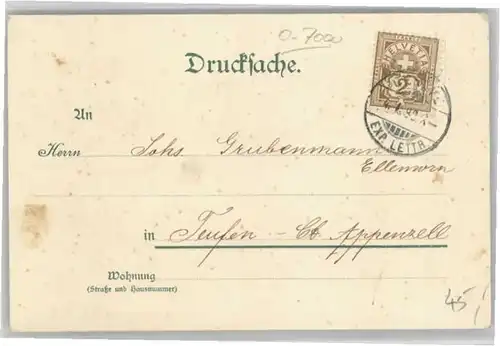 0-7000
Drucksache.
HELVETIA
2
EXP. LETTR.
An
Herrn Johs Grubenmann
Ellenworn
in Teufen – Ct. Appenzell
Wohnung
(Straße und Hausnummer)
45,